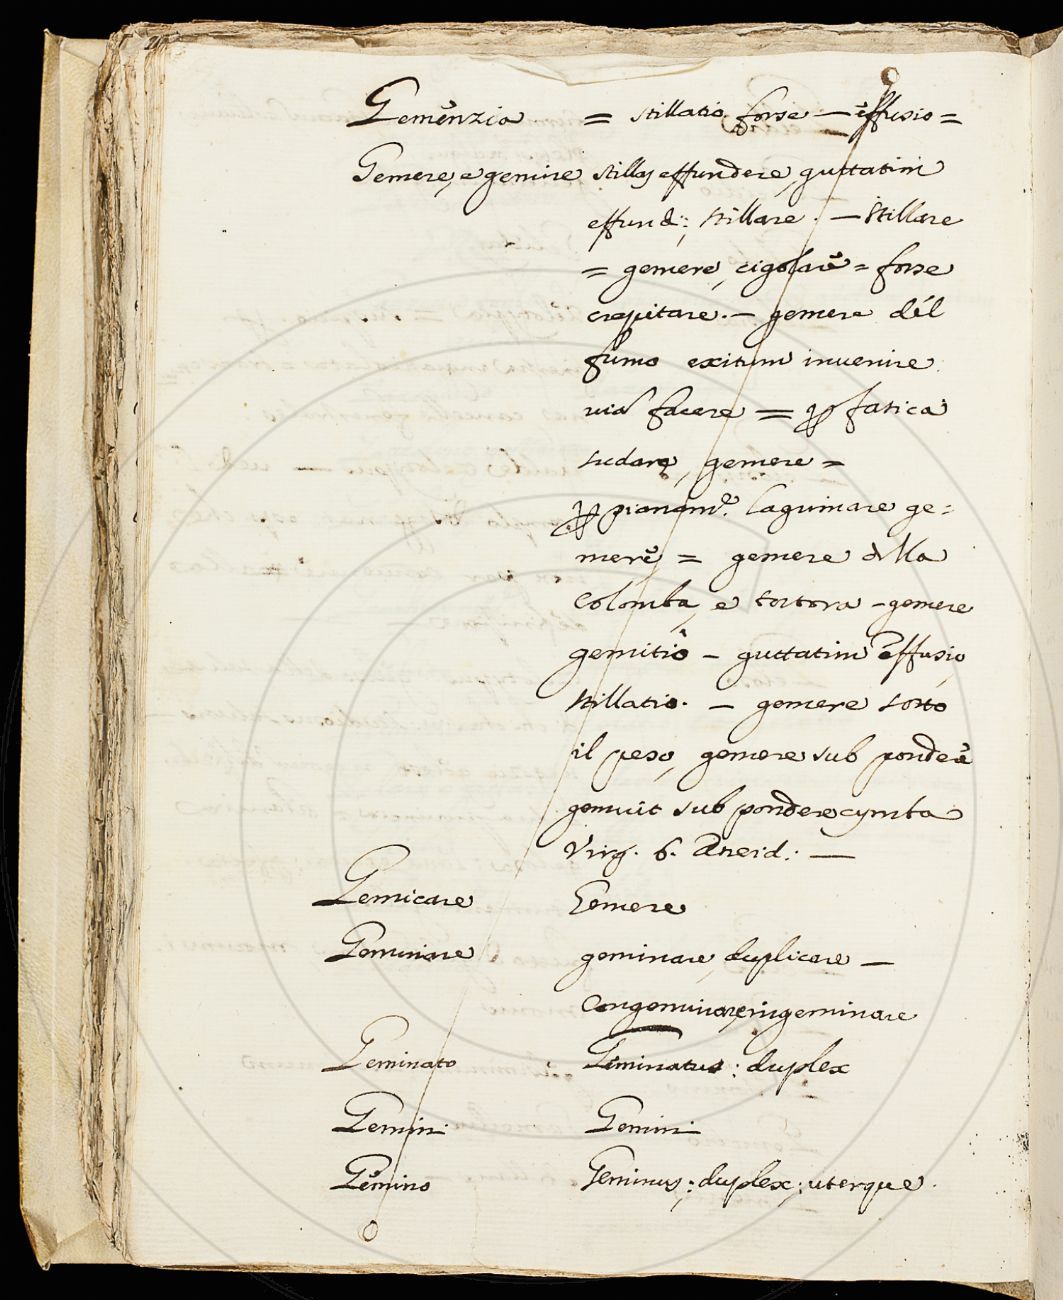 Gemenzia = stillatio forse — effusio =
Gemere, e gemire stillas effundere, guttatim
effund:; stillare. — stillare
= gemere, cigolare = forse
crepitare. — gemere del
fumo exitum invenire
via facere = per fatica
sudare, gemere =
lagrimare ge=
mere = gemere della
colomba, e tortora - gemere
gemitio — guttatim effusio,
stillatio. — gemere sotto
il peso, gemere sub pondere
gemuit sub pondere cymba
Virg. 6. Aneid: —
Gemicare Gemere
Geminare geminare, duplicare —
congeminare, ingeminare
Geminato Geminatus: duplex
Gemini Gemini
Gemino Geminus; duplex; uterque.